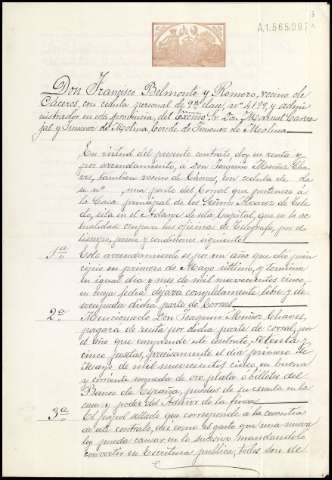 A1.565.09
Don Francisco Belmonte y Romero, vecino de
Cáceres, con cédula personal de 2ª clase, nº 4189, y admi
nistrador en esta provincia del Excmo. Sr. Don Manuel Carva
jal y Jimenez de Molina, Conde de Jimenez de Molina
En virtud del presente contrato, doy en renta y
por arrendamiento, á Don Joaquin Muñoz Cha
ves, tambien vecino de Cáceres, con cedula de de
su nº una parte del Corral que pertenece á
la Casa principal de los Señores
sita en el de esta Capital, que en la ac
tualidad ocupan las oficinas de Telégrafos, por el
tiempo, precio y condiciones siguientes
1ª Este arrendamiento es por un año que dio prin
cipio en primero de Mayo último, y termina
en igual dia y mes de mil novecientos cinco,
en cuya fecha dejará completamente libre y de
socupada dicha parte de Corral.
2ª Mencionado Don Joaquin Muñoz Chaves,
pagará de renta por dicha parte de corral, por
el año que comprende este contrato, setenta y
cinco pesetas, precisamente el dia primero de
Mayo de mil novecientos cinco, en buena
y corriente moneda de oro, plata ó billetes del
Banco de España, puestas de su cuenta en la
casa y poder del Admor. de la finca
3ª El papel sellado que corresponde á la cuantia
de este contrato, asi como el gasto que una
ley pueda causar en lo sucesivo mandandolo
convertir en Escritura publica, todos son de